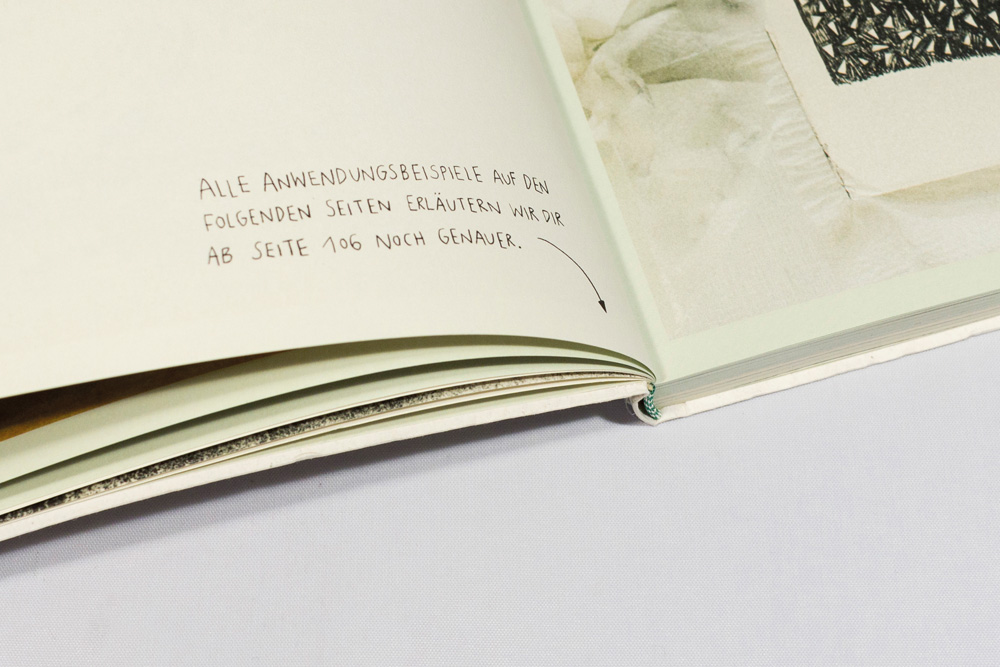 ALLE ANWENDUNGSBEISPIELE AUF DEN
FOLGENDEN SEITEN ERLÄUTERN WIR DIR
AB SEITE 106 NOCH GENAUER.